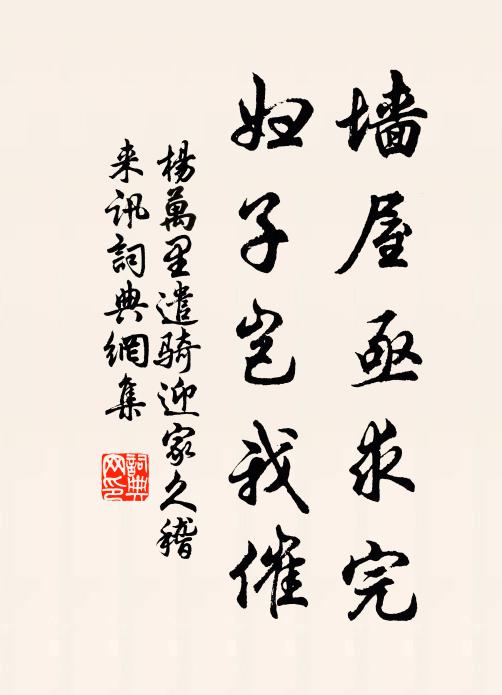 墙屋亟求完
妇子岂我催
杨萬里遣骑迎家久稽
来讯詞典網集
詞典
网印